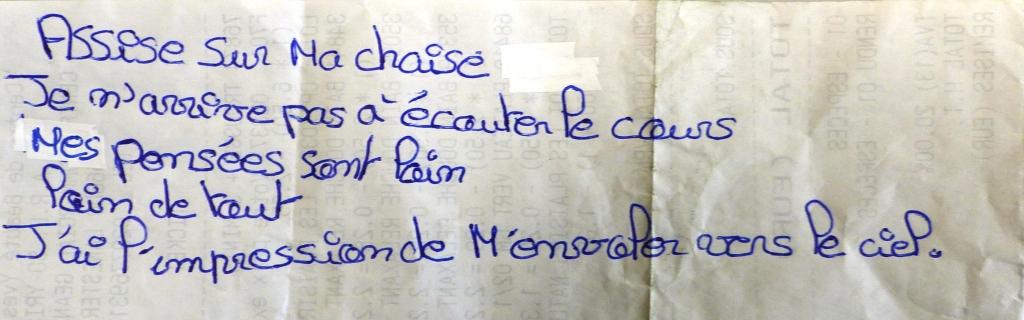 Assise sur Ma chaise
Je n'arrive pas à écouter le cours
Mes pensées sont loin
loin de tout
J'ai l'impression de M'envoler vers le ciel.